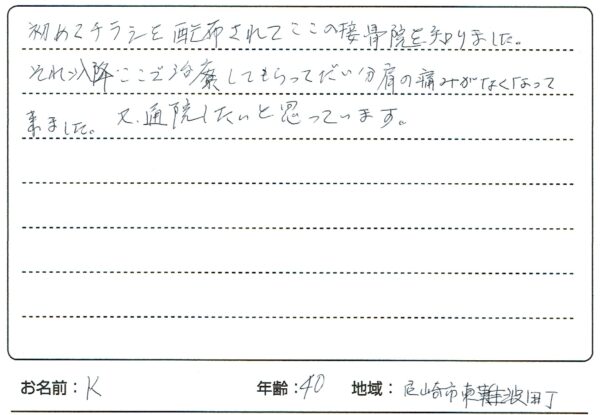 初めてチラシを配布されてここの接骨院を知りました。
それ以降ここで治療してもらってだい分肩の痛みがなくなって
来ました。又、通院したいと思っています。
お名前:K 年齢:40 地域:尼崎市東難波町